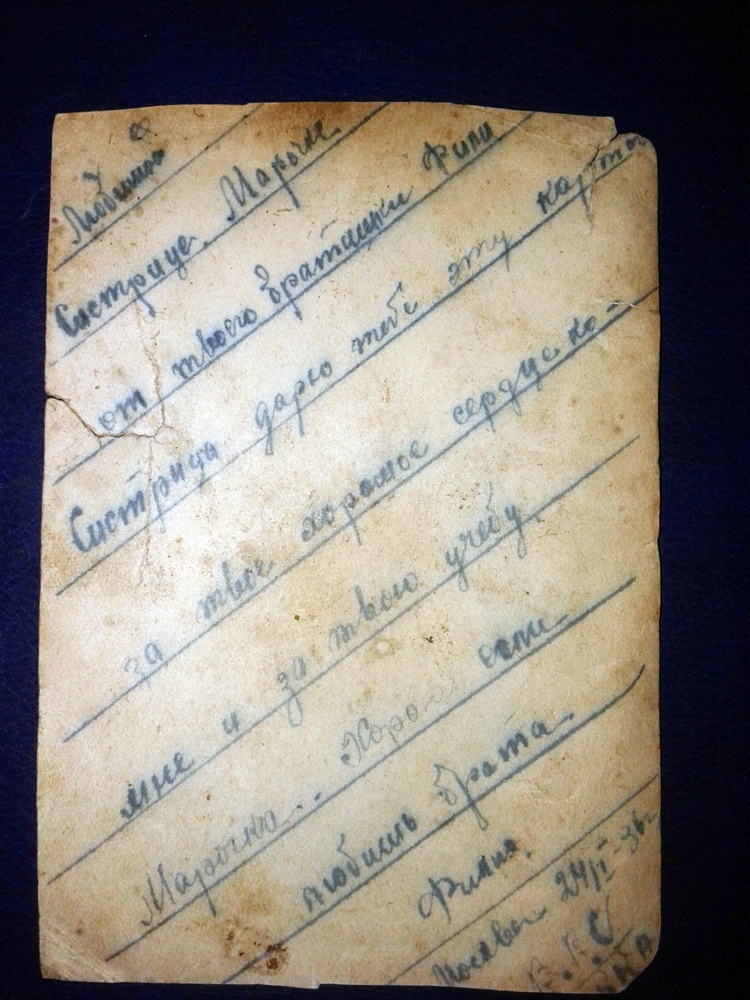 Любимой
Систрице Марочке
от твоего братишки Фили
Систрица дарю тебе эту карточ
за твое хорошое сердце ко-
мне и за твою учебу
Марочка.. Хорошо если
любишь брата
Филип.
Москва 24/I-36г